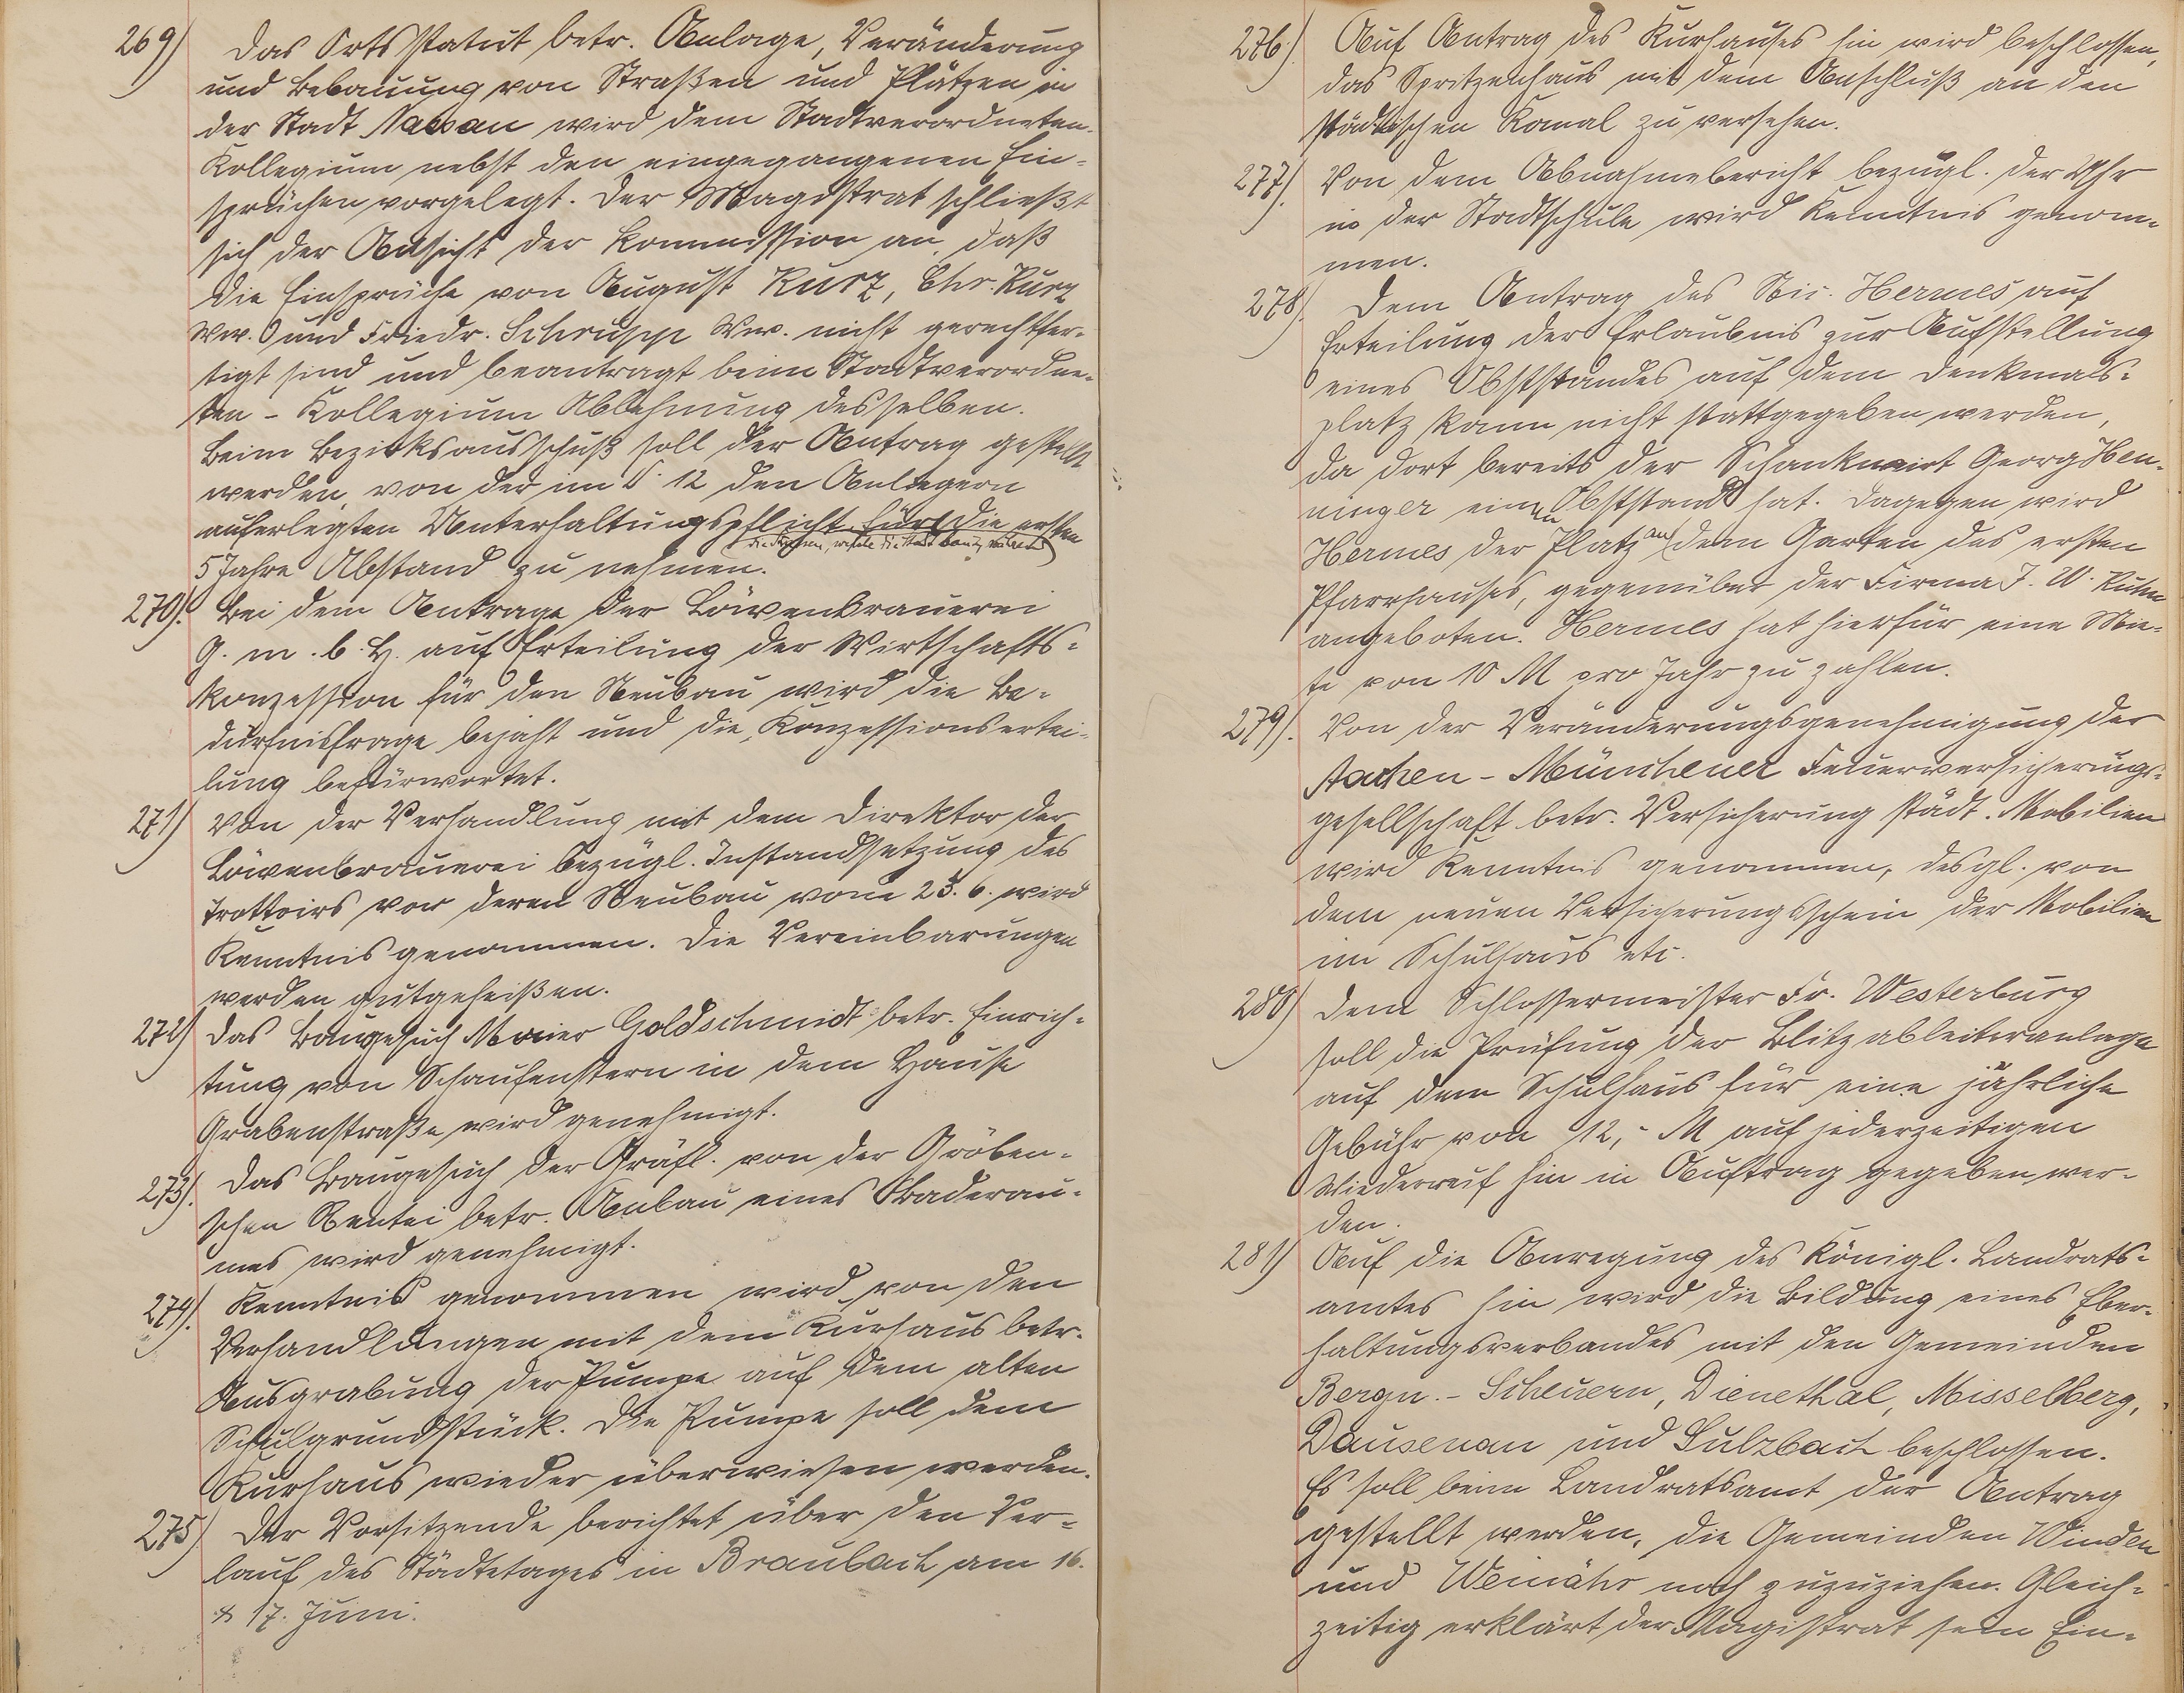 269) Das Ortsstatut betr. Anlage, Veränderung
und Bebauung von Straßen und Plätzen in
der Stadt Nassau wird dem Stadtverordneten-
Kollegium nebst den eingegangenen Ein-
sprüchen vorgelegt. Der Magistrat schließt
sich der Ansicht der Kommission an, daß
die Einsprüche von August Kurz, Chr. Kurz
Ww. und Friedr. Schrupp Ww. nicht gerechtfer-
tigt sind und beantragt beim Stadtverordne-
ten-Kollegium Ablehnung desselben.
Beim Bezirksausschuß soll der Antrag gestellt
werden, von der im § 12 den Anliegern
auferlegten Unterhaltungspflicht für die ersten
die Straßen, welche die Stadt baut, während
5 Jahre Abstand zu nehmen.
270). Bei dem Antrage der Löwenbrauerei
G.m.b.H. auf Erteilung der Wirtschafts-
konzession für den Neubau wird die Be-
dürfnisfrage bejaht und die Konzessionsertei-
lung befürwortet.
271) Von der Verhandlung mit dem Direktor der
Löwenbrauerei bezügl. Instandsetzung des
Trottoirs vor deren Neubau vom 23.6. wird
Kenntnis genommen. Die Vereinbarungen
werden gutgeheißen.
272) Das Baugesuch Maier Goldschmidt betr. Einrich-
tung von Schaufenstern in dem Hause
Grabenstraße wird genehmigt.
273). Das Baugesuch der Gräfl. von der Gröben-
schen Rentei betr. Anbau eines Baderau-
mes wird genehmigt.
274). Kenntnis genommen wird von den
Verhandlungen mit dem Kurhaus betr.
Ausgrabung der Pumpe auf dem alten
Schulgrundstück. Die Pumpe soll dem
Kurhaus wieder überwiesen werden.
275) Der Vorsitzende berichtet über den Ver-
lauf des Städtetages in Braubach am 16.
& 17. Juni.
276). Auf Antrag des Kurhauses hin wird beschlossen,
das Spritzenhaus mit dem Anschluß an den
städtischen Kanal zu versehen.
277). Von dem Abnahmebericht bezügl. der Uhr
in der Stadtschule wird Kenntnis genom-
men.
278). Dem Antrag des Nic. Hermes auf
Erteilung der Erlaubnis zur Aufstellung
eines Obststandes auf dem Denkmals-
platz kann nicht stattgegeben werden,
da dort bereits der Schankwirt Georg Hen-
ninger einen Obststand hat. Dagegen wird
Hermes der Platz an dem Garten des ersten
Pfarrhauses, gegenüber der Firma J. W. Kuhn
angeboten. Hermes hat hierfür eine Mie-
te von 10 M pro Jahr zu zahlen.
279). Von der Veränderungsgenehmigung der
Aachen-Münchener Feuerversicherungs-
gesellschaft betr. Versicherung städt. Mobilien
wird Kenntnis genommen, desgl. von
dem neuen Versicherungsschein der Mobilien
im Schulhaus etc.
280) Dem Schlossermeister Fr. Westerburg
soll die Prüfung der Blitzableiteranlage
auf dem Schulhaus für eine jährliche
Gebühr von 12,- M auf jederzeitigen
Wiederruf hin in Auftrag gegeben wer-
den.
281) Auf die Anregung des Königl. Landrats-
amtes hin wird die Bildung eines Eber-
haltungsverbandes mit den Gemeinden
Bergn.-Scheuern, Dienethal, Misselberg,
Dausenau und Sulzbach beschlossen.
Es soll beim Landratsamt der Antrag
gestellt werden, die Gemeinden Winden
und Weinähr noch zuzuziehen. Gleich-
zeitig erklärt der Magistrat sein Ein-